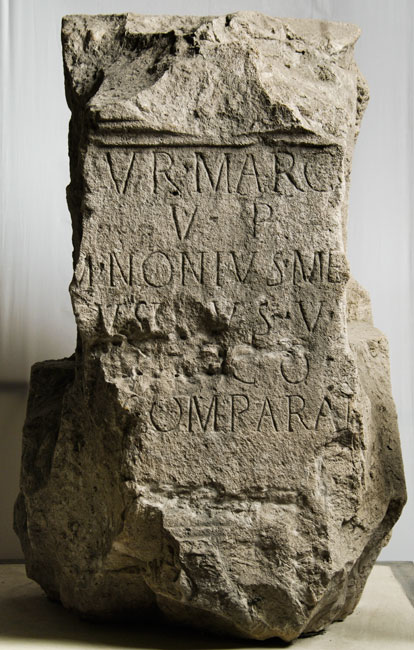 VR·MARC
V P
NONIVS·ME
VS·V
CO
OMPARA